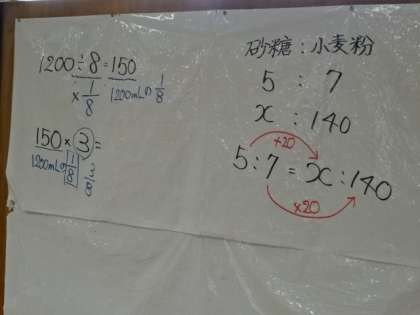 1200÷8=150
×1/8 1200mLの1/8
150×3=
1200mLの1/8 3/8
砂糖:小麦粉
5 : 7
x : 140
×20
5:7=x:140
×20